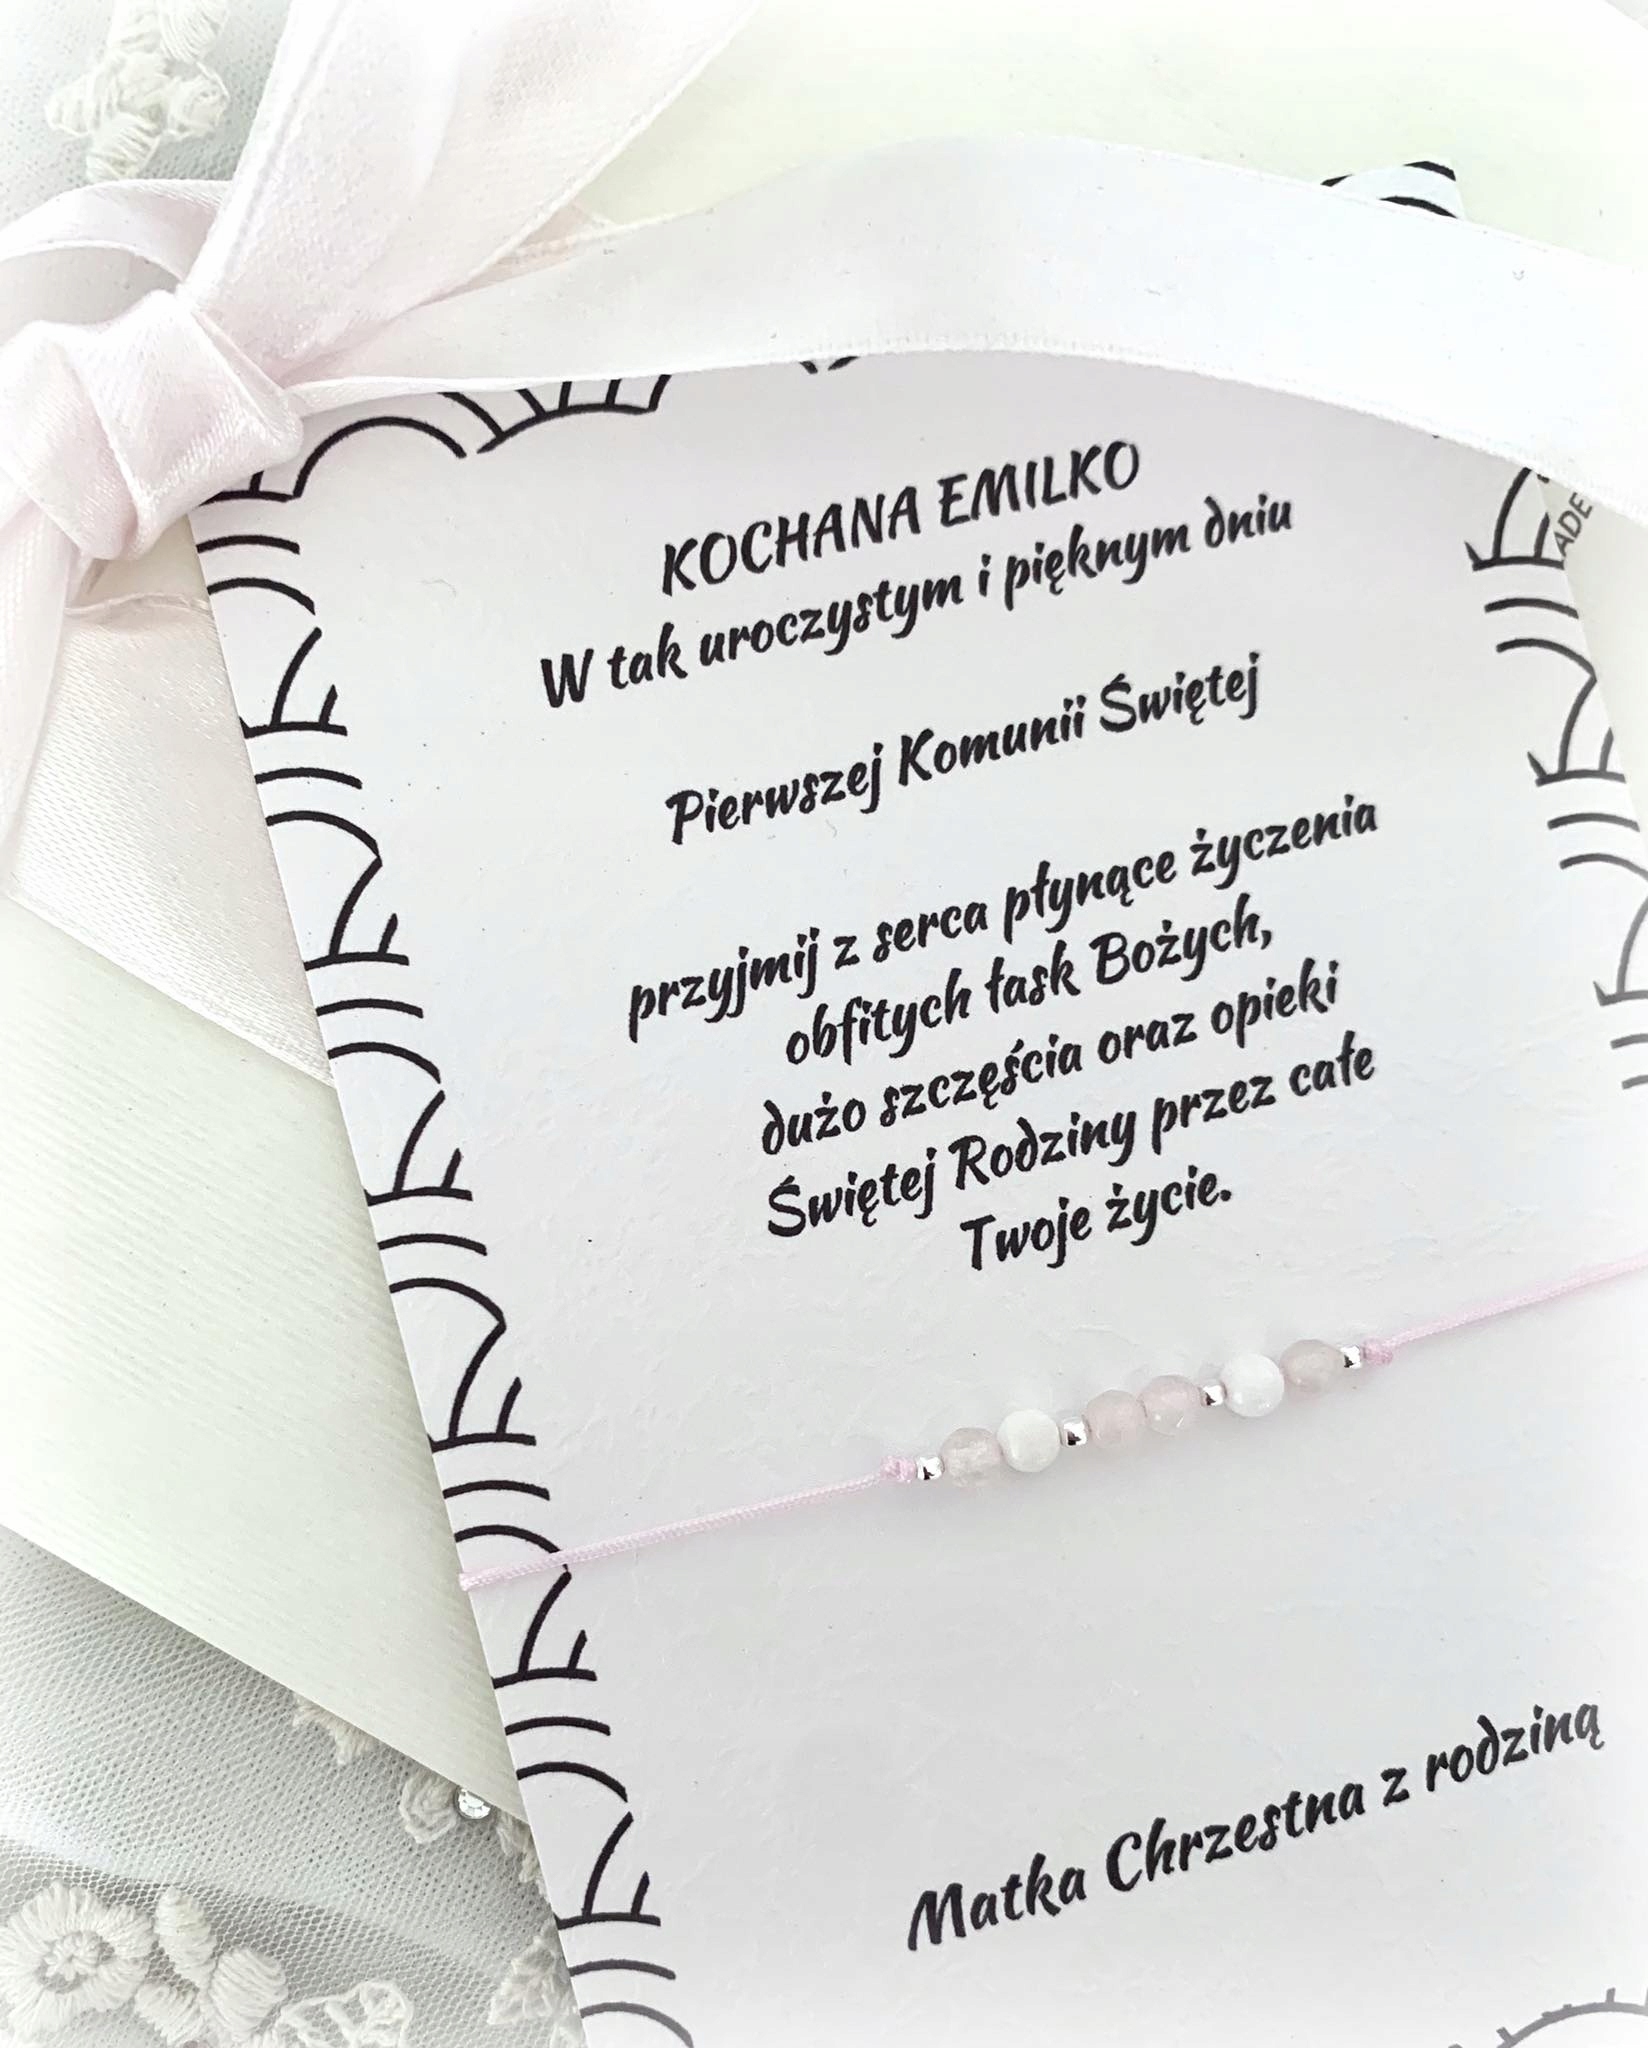 KOCHANA EMILKO
W tak uroczystym i pięknym dniu
Pierwszej Komunii Świętej
przyjmij z serca płynące życzenia
obfitych łask Bożych,
dużo szczęścia oraz opieki
Świętej Rodziny przez całe
Twoje życie.
Matka Chrzestna z rodziną